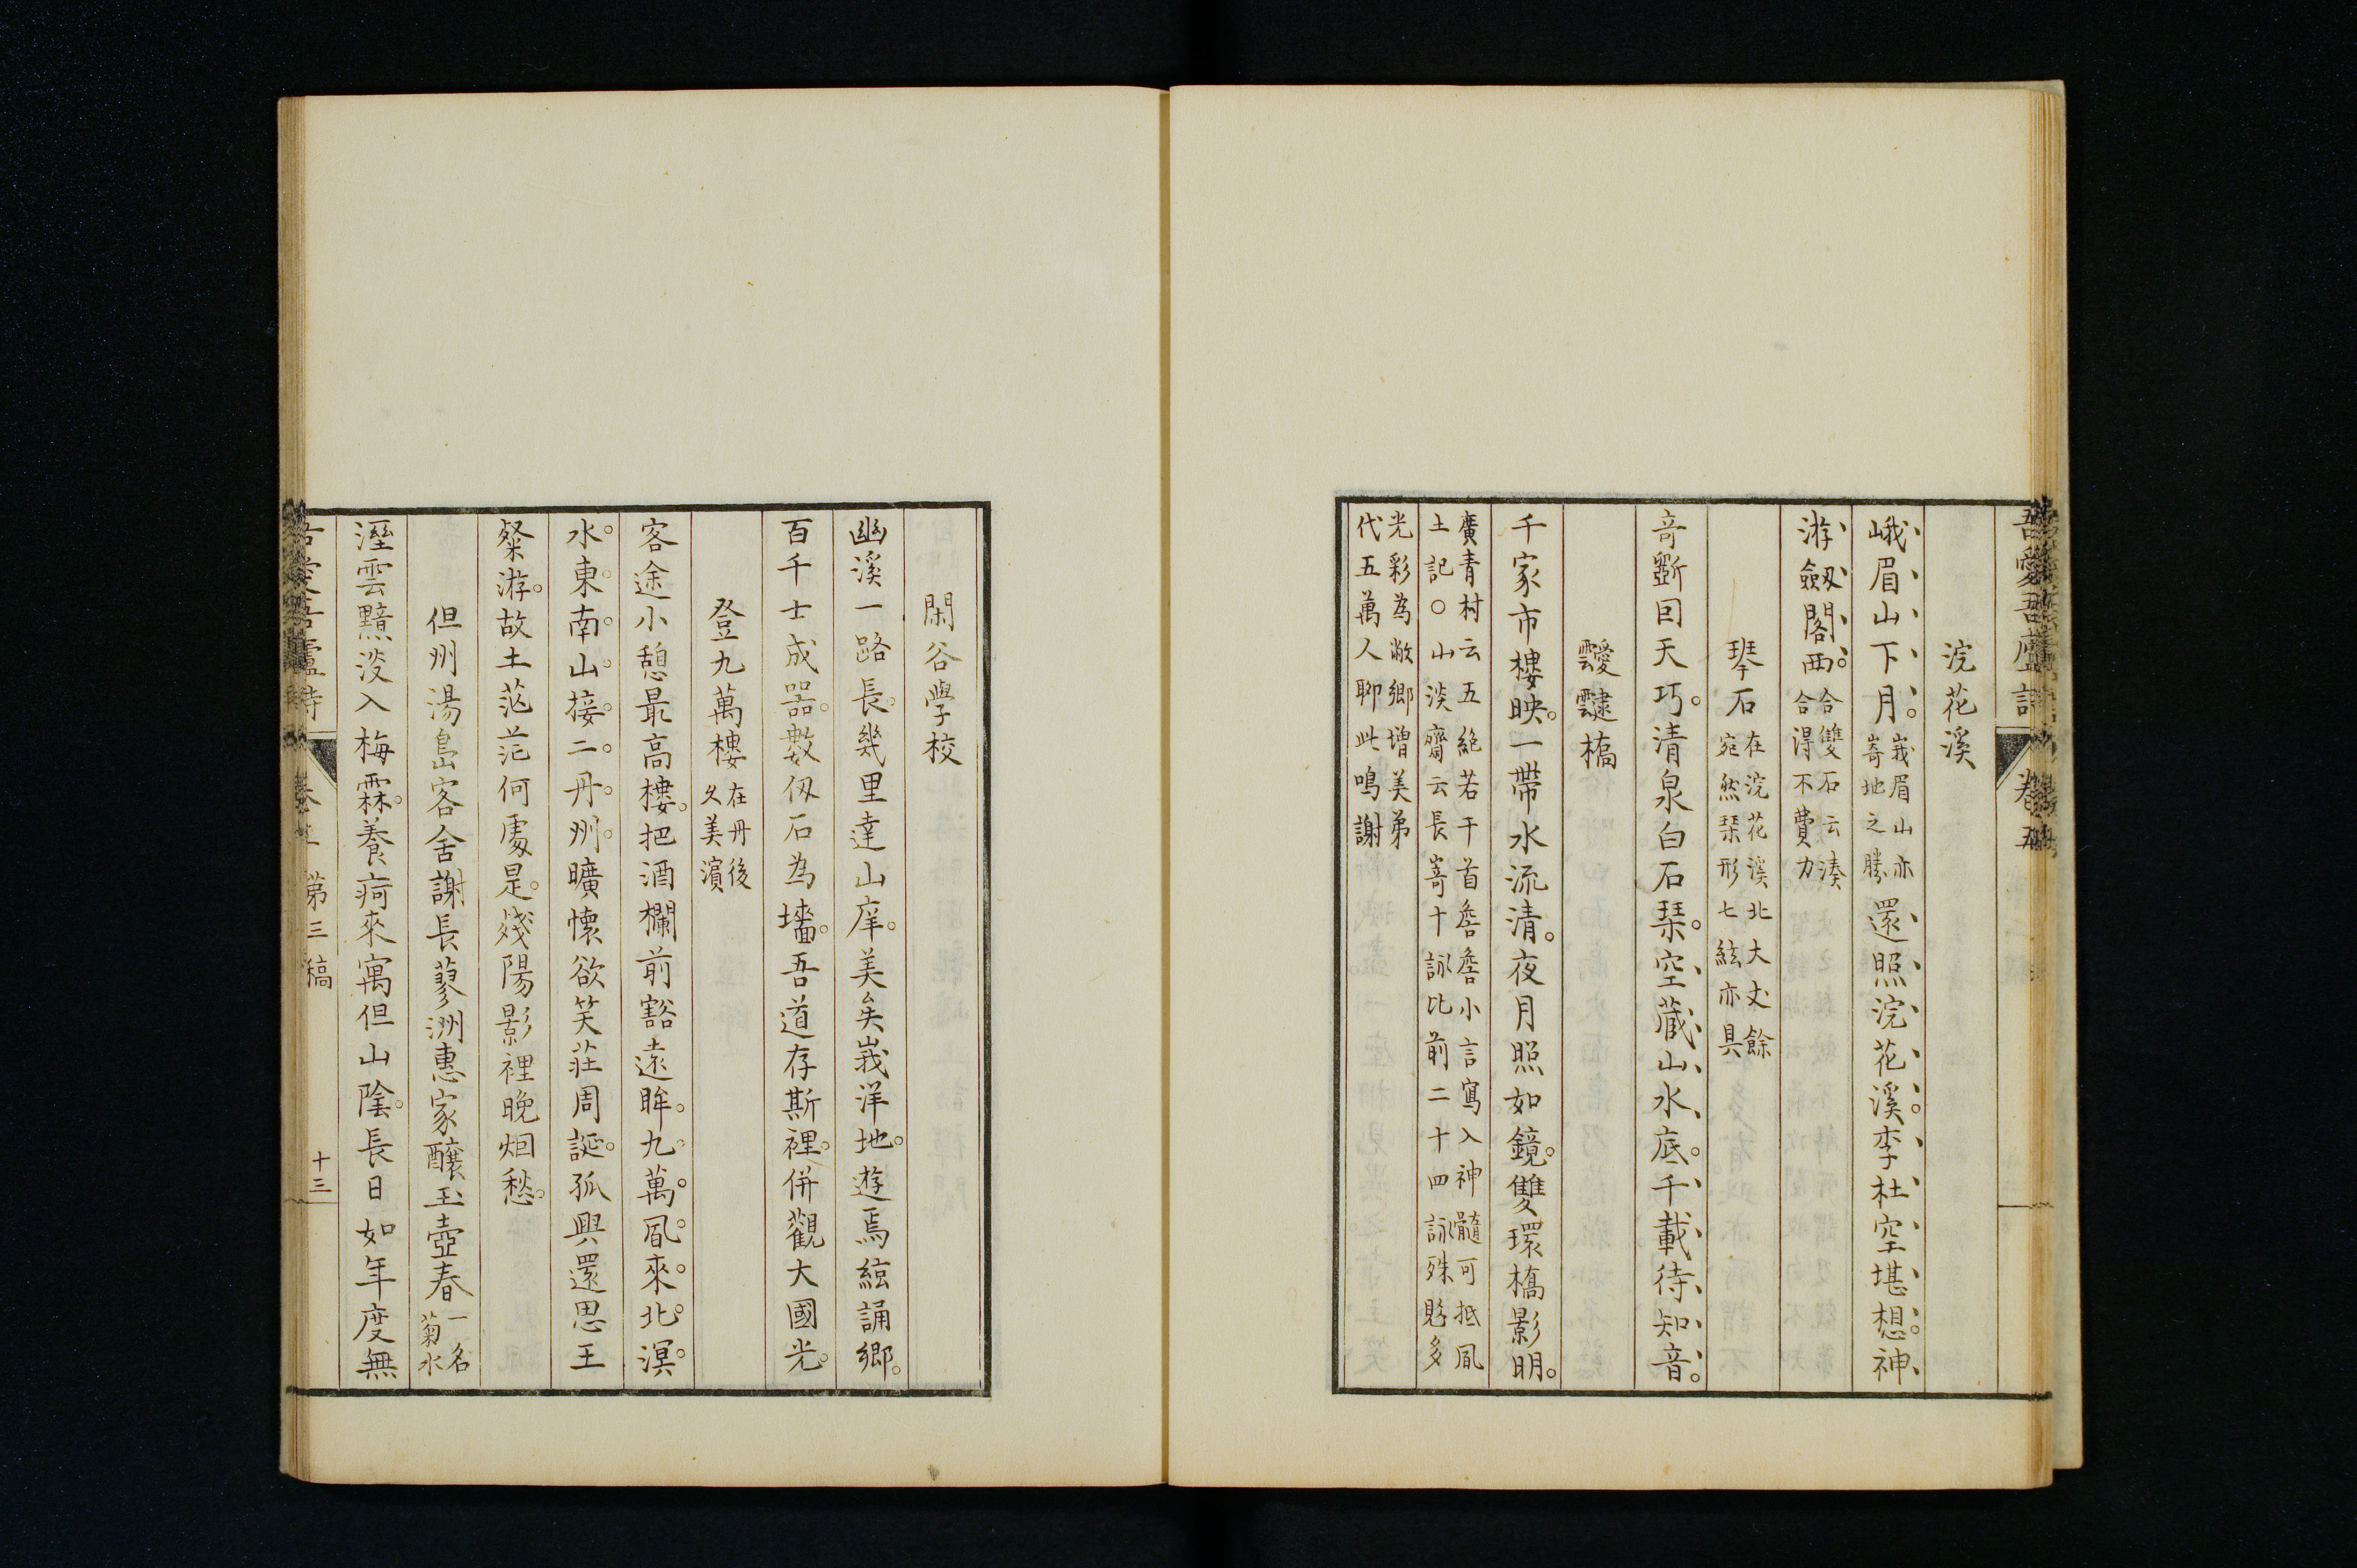 吾愛吾廬詩 卷五
浣花溪
峨眉山下月。峩眉山亦嵜地之勝還照浣花溪。李杜空堪想。神
游劔閣西。合雙石云湊合得不費力
琴石在浣花溪北大丈餘宛然琹形七絃亦具
竒斵囙天巧。清泉白石琹。空藏山水底。千載待知音。
靉靆橋
千家市樓映。一帶水流清。夜月照如鏡。雙環橋影明。
廣青村云五絶若干首詹詹小言寫入神髓可抵風
土記○山淡齋云長嵜十詠比前二十四詠殊覺多
光彩為敝鄉增美弟
代五萬人聊此鳴謝
閑谷學校
幽溪一路長。幾里達山庠。美矣峩洋地。遊焉絃誦鄉。
百千士成器。數仭石為墻。吾道存斯裡。併觀大國光。
登九萬樓在丹後久美濱
客途小憩最高樓。把酒欄前豁遠眸。九萬風來北溟
水。東南山接二丹州。曠懷欲笑莊周誕。孤興還思王
粲游。故土茫茫何處是。殘陽影裡晚烟愁。
但州湯島客舍謝長蓼洲惠家釀玉壺春一名菊水
溼雲黯淡入梅霖。養疴來寓但山陰。長日如年度無
吾愛吾廬詩 卷五 第三稿 十三